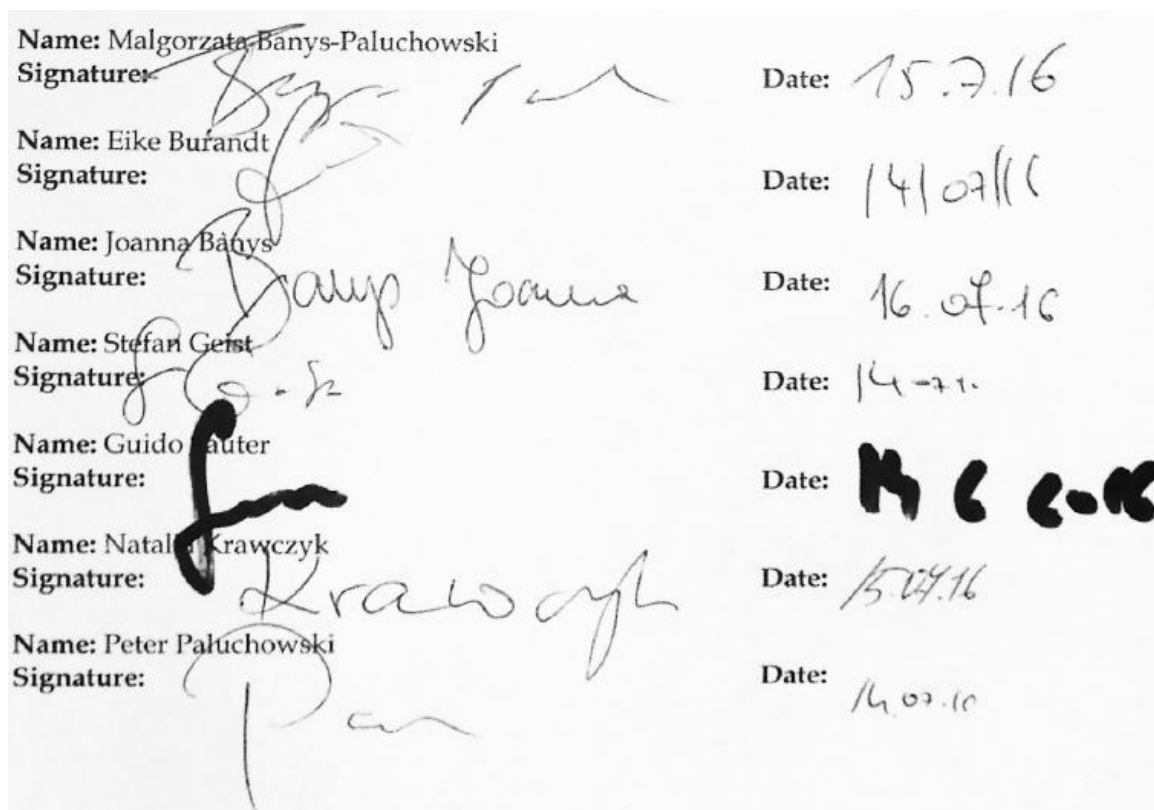 Name: Malgorzata Banys-Paluchowski
Signature: Date: 15.7.16
Name: Eike Burandt
Signature: Date: 14/07/16
Name: Joanna Banys
Signature: Banys Joanna Date: 16.07.16
Name: Stefan Geist
Signature: Date: 14
Name: Guido Sauter
Signature: Date:
Name: Natalia Krawczyk
Signature: Krawczyk Date: 15.07.16
Name: Peter Paluchowski
Signature: Date: 14.07.16